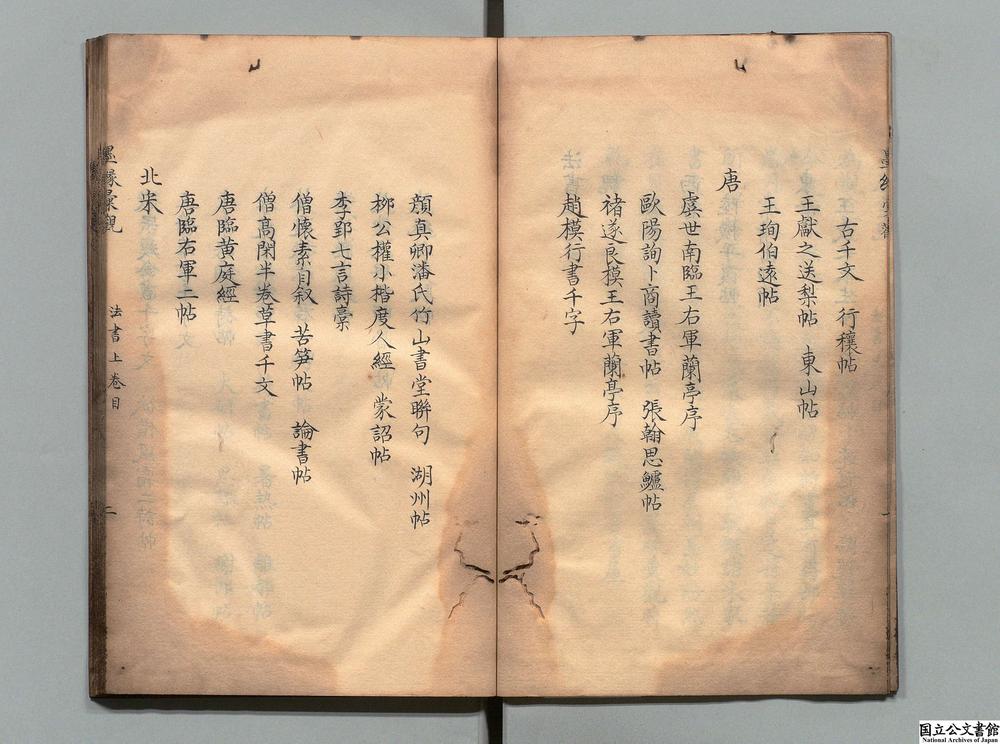 古千文 行穰帖
王獻之送梨帖 東山帖
王珣伯遠帖
唐
虞世南臨王右軍蘭亭序
歐陽詢卜商讀書帖 張翰思鱸帖
褚遂良模王右軍蘭亭序
趙模行書千字
顏真卿潘氏竹山書堂聯句 湖州帖
栁公權小揩度人經 蒙詔帖
李郢七言詩稾
僧懷素自叙 苦笋帖 論書帖
僧髙閑半卷草書千文
唐臨黄庭經
唐臨右軍二帖
北宋
墨緣彚觀
法書上卷目
二
国立公文書館
National Archives of Japan